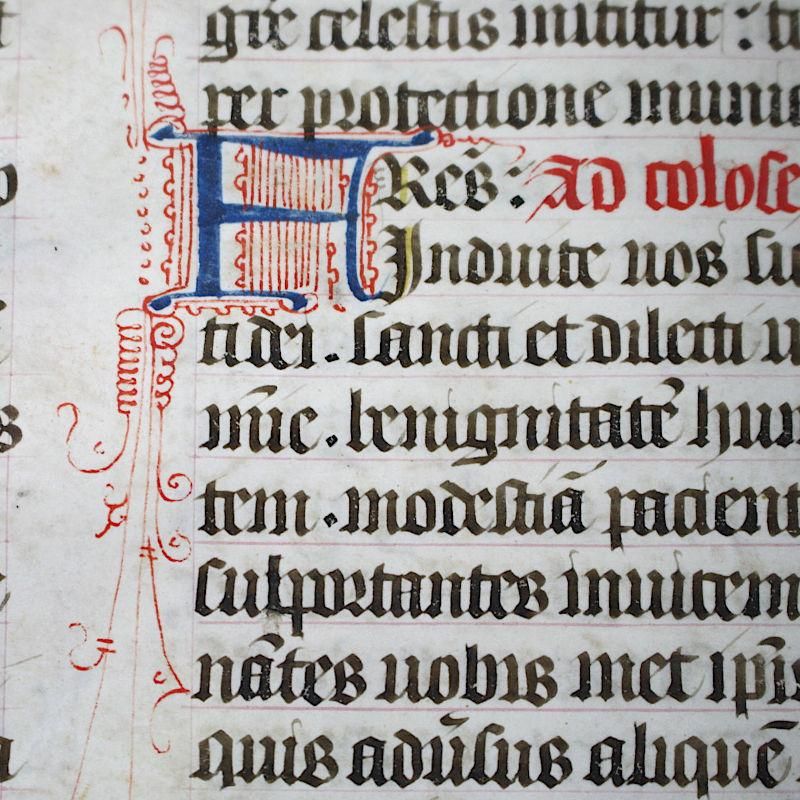 gīe celestis inititur : tu
per protectione muni
FRēs : Ad colose
Induite uos sic
ti dei . sancti et dilecti u
mīe . benignitatē hum
tem . modestiā pacient
subportantes inuicem
nātes uobis met ip̄is
quis adūsus aliquē